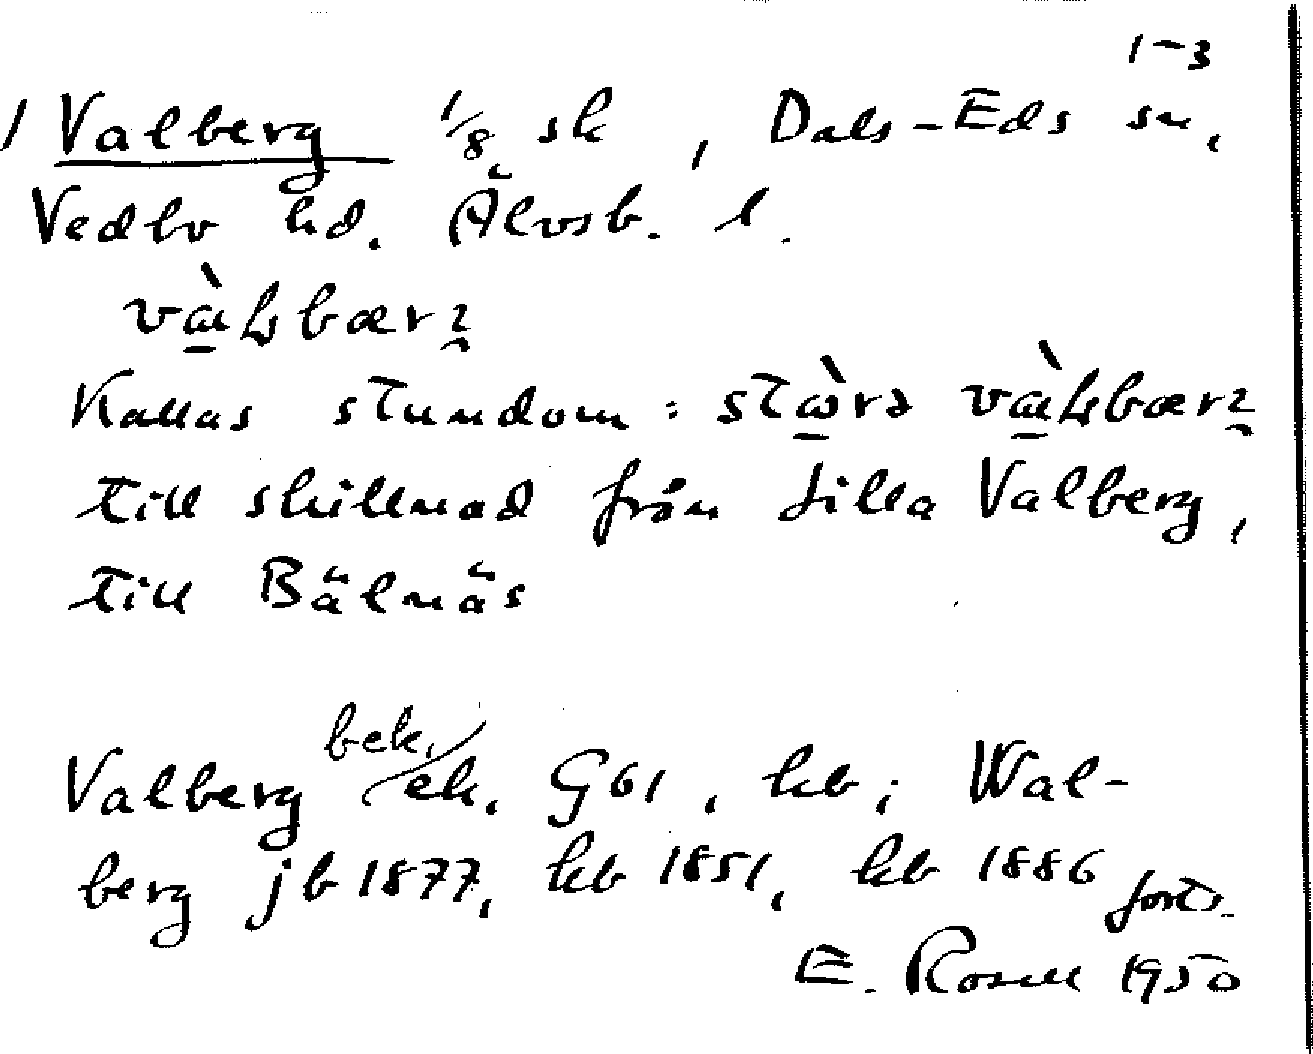 1-3
1 Valberg 1/8 sk, Dals-Eds sn,
Vedbo hd. Älvsb. l.
Kallas stundom:
till skillnad från Lilla Valberg,
till Bälnäs
bek.
Valberg ek. G61, kb; Wal-
berg jb 1877, kb 1851, kb 1886 forts.
E. Rosell 1950